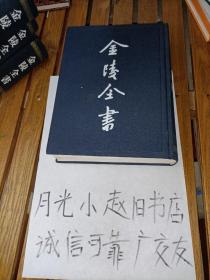 金陵全書
金陵全書
金陵全書
月光小赵旧书店
诚信可靠广交友